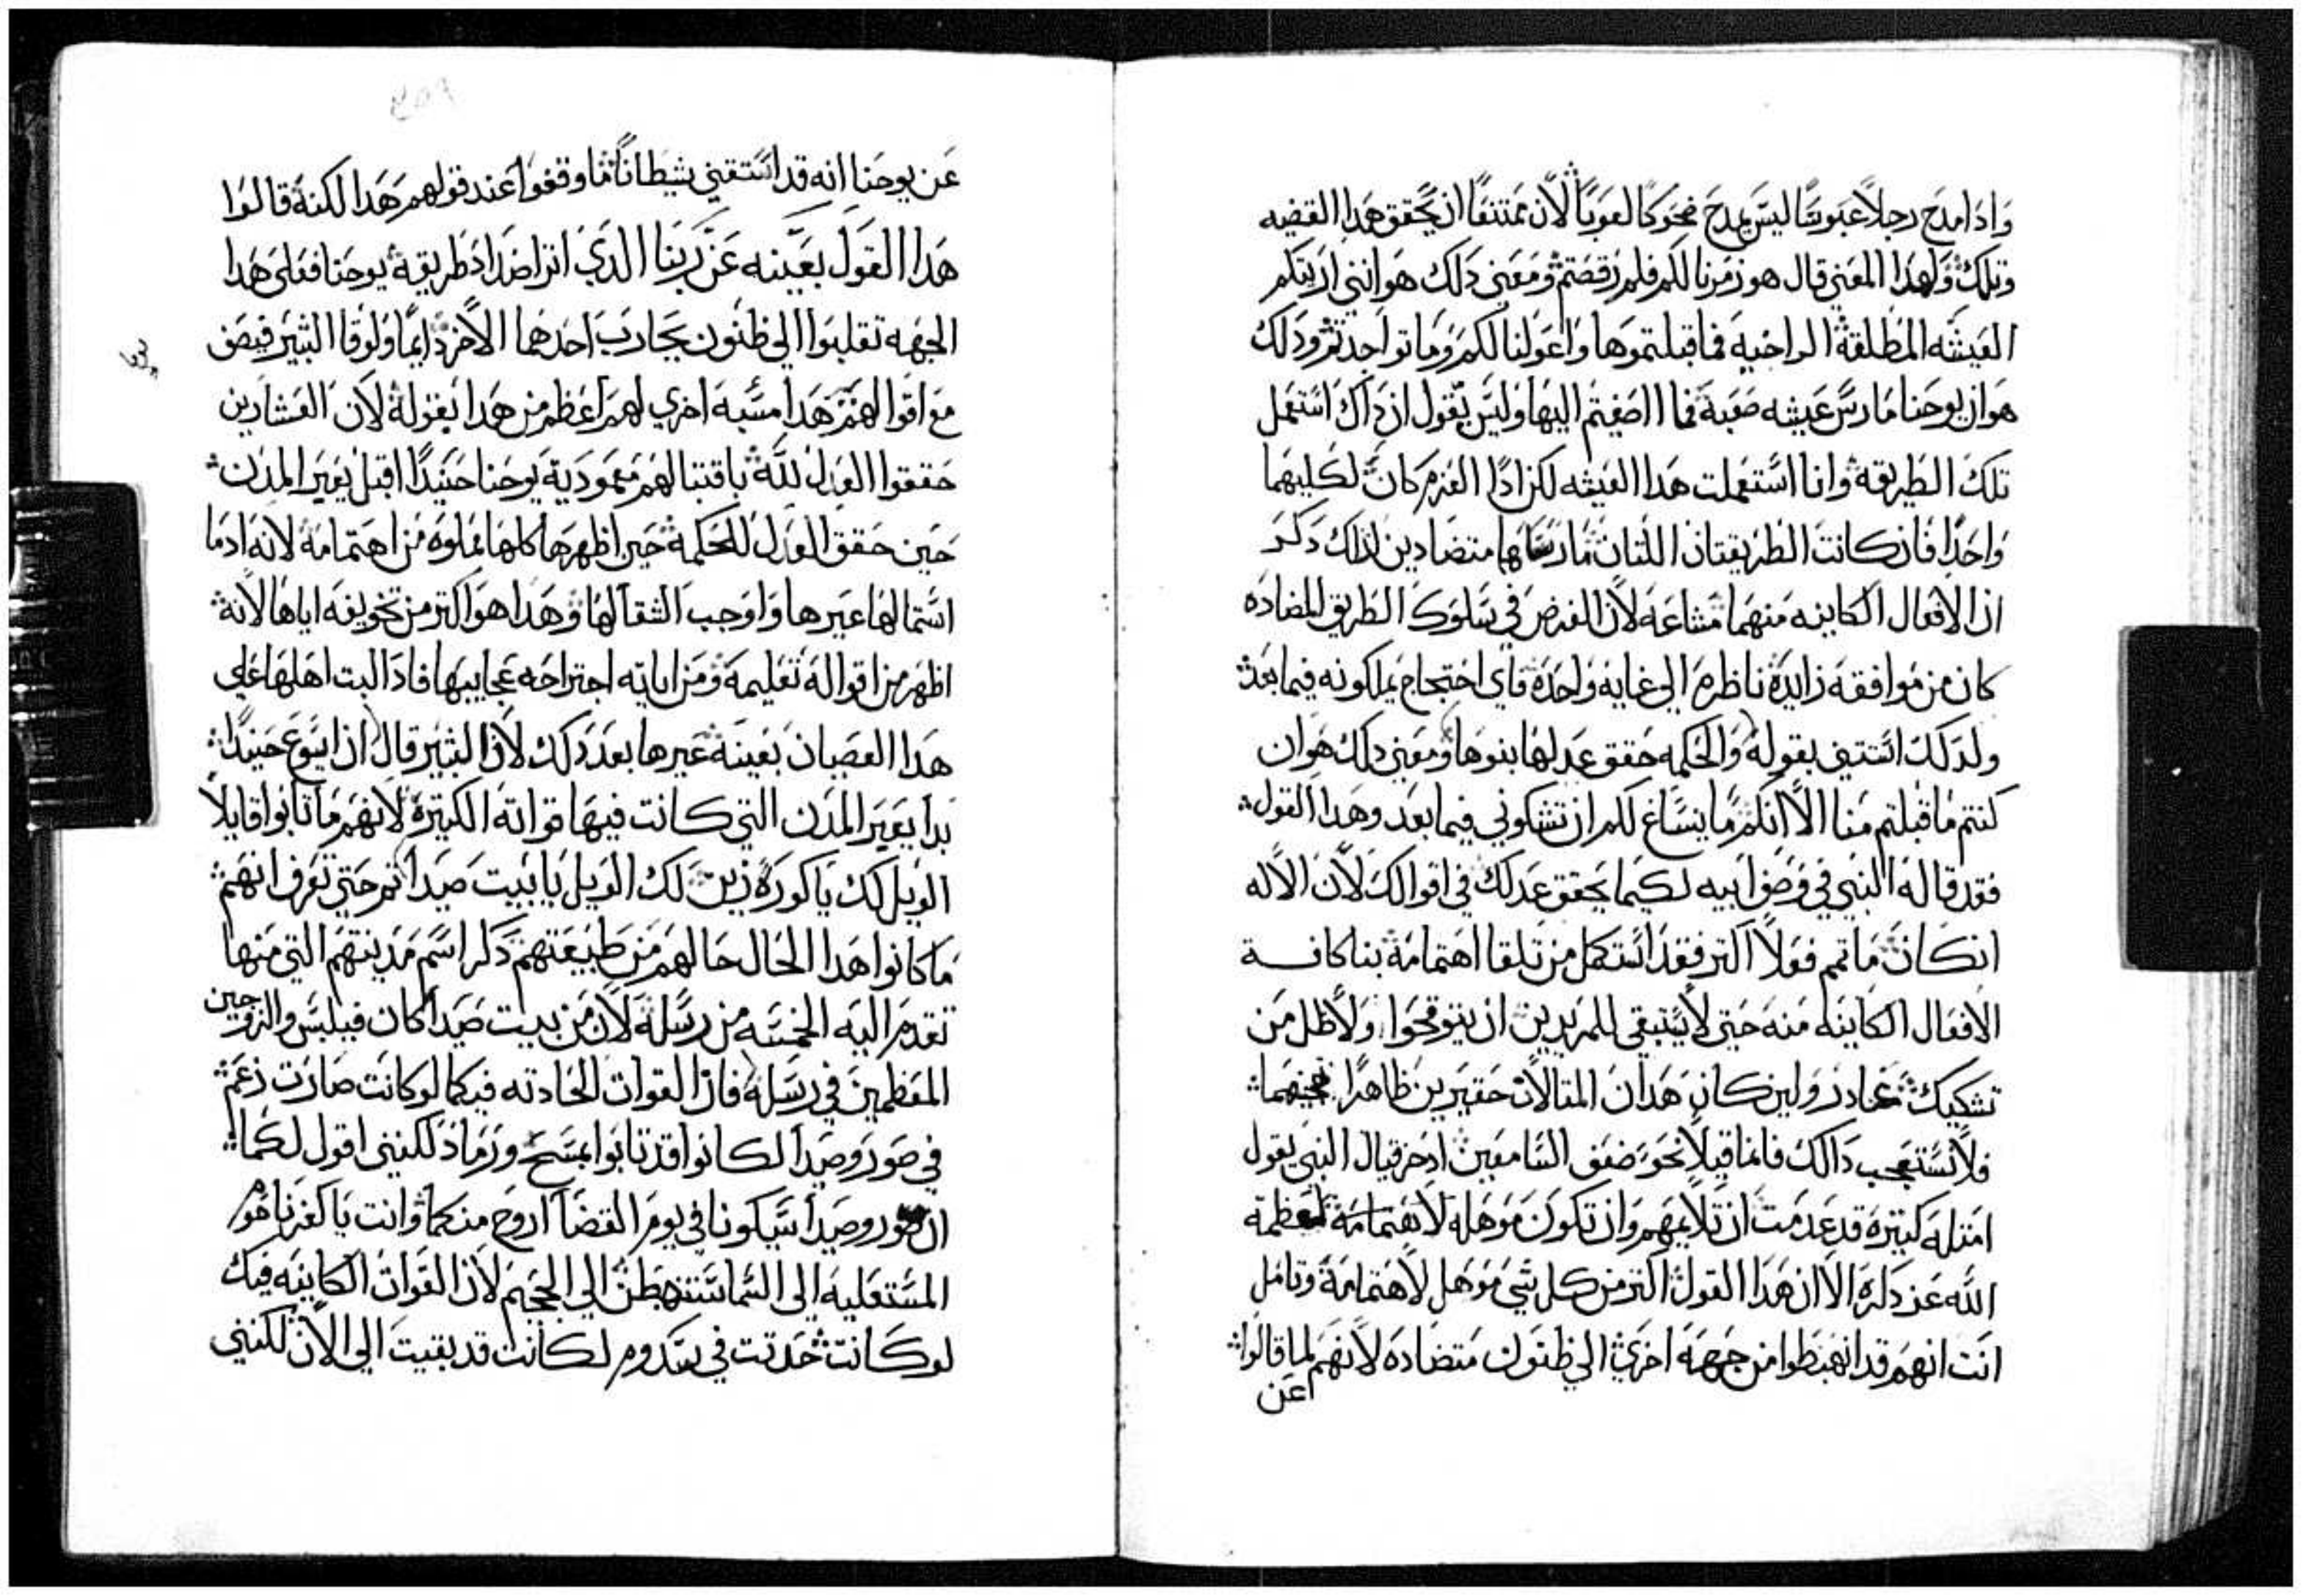 واذا مدح رجلاً عبوسًا ليس يمدح ضحوكًا لعوبًا لأن ممتنعًا ان يحقق هذا القضيه
وتلك ولهذا المعني قال هو زمرنا لكم فلم رقصتم ومعني ذلك هو انني اريتكم
العيشه المطلقة الراخيه فما قبلتموها واعولنا لكم وما نواجدتم وذلك
هو ان يوحنا مارس عيشه صعبة فما اصغيتم اليها وليس يقول ان ذاك استعمل
تلك الطريقة وانا استعملت هذا العيشه لكن اذا العزم كان لكليهما
واحدًا فان كانت الطريقتان اللتان مارساهما متضادين لذلك ذكر
ان الافعال الكاينه منهما مشاعه لأن الغرض في سلوك الطريق المضاده
كان من موافقه زايدة ناظره الي غايه واحدة فاي احتجاج يملكونه فيما بعد
ولذلك استتني بقوله والحكمه حقق عدلها بنوها ومعني ذلك هو ان
كنتم ما قبلتم منا الا انكم ما ينساغ لكم ان تشكوني فيما بعد وهذا القول
فقد قاله النبي في وصف ابيه لكيما يحقق عدلك في اقوالك لأن الاله
ان كان ما تمم فعولاً اكتر فقد استكمل من تلقا اهتمامه بنا كافـــة
الافعال الكاينه منه حتي لا يستبقي للمريدين ان يتوقحوا ولا ظل من
تشكيك غادر ولين كان هذان المتالان حقيرين ظاهرًا
فلا تستعجب ذالك فانما قيلا نحو ضعف السامعين اذ حزقيال النبي يقول
امتله كتيره قد عدمت ان تلايمهم وان تكون موهله لاهتمامه لعظمة
الله عز ذكره الا ان هذا القول اكتر من كل شي موهل لاهتمامه وتامل
انت انهم قد انهبطوا من جهه اخري الي ظنون متضاده لانهم لما قالوا
عن
عن يوحنا انه قد استقني شيطانًا ما وقفوا عند قولهم هذا لكنه قالوا
هذا القول بعينه عن ربنا الذي اتر اضداد طريقة يوحنا فعلي هذا
الجهه تقلبوا الي ظنون يحارب احدهما الاخر دايمًا ولوقا البشير فيصف
مع اقوالهم هذا مسبه اخري لهم اعظم من هذا بقوله لأن العشارين
حققوا العدل لله باقتبالهم معمودية يوحنا حنيدًا اقبل يعير المدن
حين حقق العدل للحكمة حين اظهرها كلها مملوه من اهتمامه لانه اذ ما
استمالها عيرها واوجب الشقا لها وهذا هو اكتر من تخويفه اياها لأنه
اظهر من اقواله تعليمه ومن اياته اجتراحه عجايبها فاذ البت اهلها علي
هذا العصيان بعينه عيرها بعد ذلك لأن البشير قال ان ايسوع حنيدًا
بدا يعير المدن التي كانت فيها قواته الكتيرة لأنهم ما تابوا قايلاً
الويل لك يا كورة زين لك الويل يا بيت صيدا تم حتي تعرف انهم
ما كانوا هذا الحال حالهم من طبيعتهم ذكر اسم مدينتهم التي منها
تقدم اليه الخمسه من رسله لان من بيت صيدا كان فيلبس والزوجين
المعظمين في رسله فان القوات الحادته فيكما لو كانت صارت زعم
في صور وصيدا لكانوا قد تابوا بمسح ورماد لكنني اقول لكما
ان صور وصيدا سيكونا في يوم القضا اروح منكما وانت يا كفرناحوم
المستعليه الى السما ستنهبطن الي الجحيم لأن القوات الكاينه فيك
لو كانت حدتت في سدوم لكانت قد بقيت الي الآن لكنني